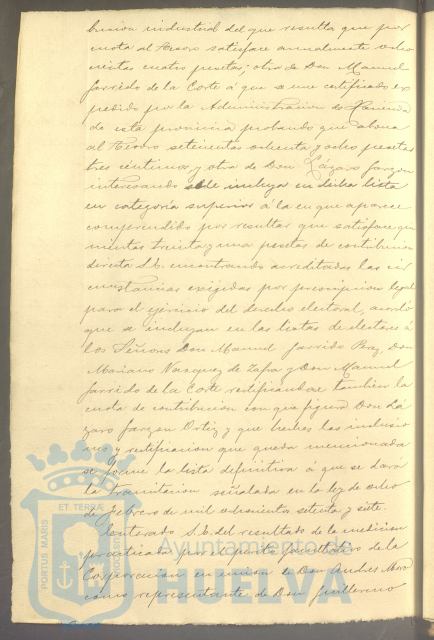 bucion industrial del que resulta que por
cuota al Tesoro satisface anualmente ocho
cientas cuatro pesetas; otra de Don Manuel
Garrido de la Corte á que se une certificado ex
pedido por la Administracion de Hacienda
de esta provincia probando que abona
al Tesoro setecientas ochenta y ocho pesetas
tres centimos y otra de Don Lázaro Garzon
interesando se le incluya en dicha lista
en categoría superior á la en que aparece
comprendido por resultar que satisface qui
nientas treinta y una pesetas de contribucion
directa S.E. encontrando acreditadas las cir
cunstancias exigidas por prescripcion legal
para el ejercicio del derecho electoral, acordó
que se incluyan en las listas de electores á
los Señores Don Manuel Garrido Perez, Don
Mariano Vazquez de Zafra y Don Manuel
Garrido de la Corte rectificandose tambien la
cuota de contribucion con que figura Don Lá
zaro Garzon Ortiz y que hechas las inclusio
nes y rectificacion que queda mencionada
se forme la lista definitiva á que se dará
la tramitacion señalada en la ley de ocho
de Febrero de mil ochocientos setenta y siete.
Enterado S.E. del resultado de la medicion
practicada por el perito facultativo de la
Corporacion en union de Don Andres Mora
como representante de Don Guillermo
PORTUS MARIS
ET TERRÆ
CUSTODIA
Ayuntamiento de
HUELVA